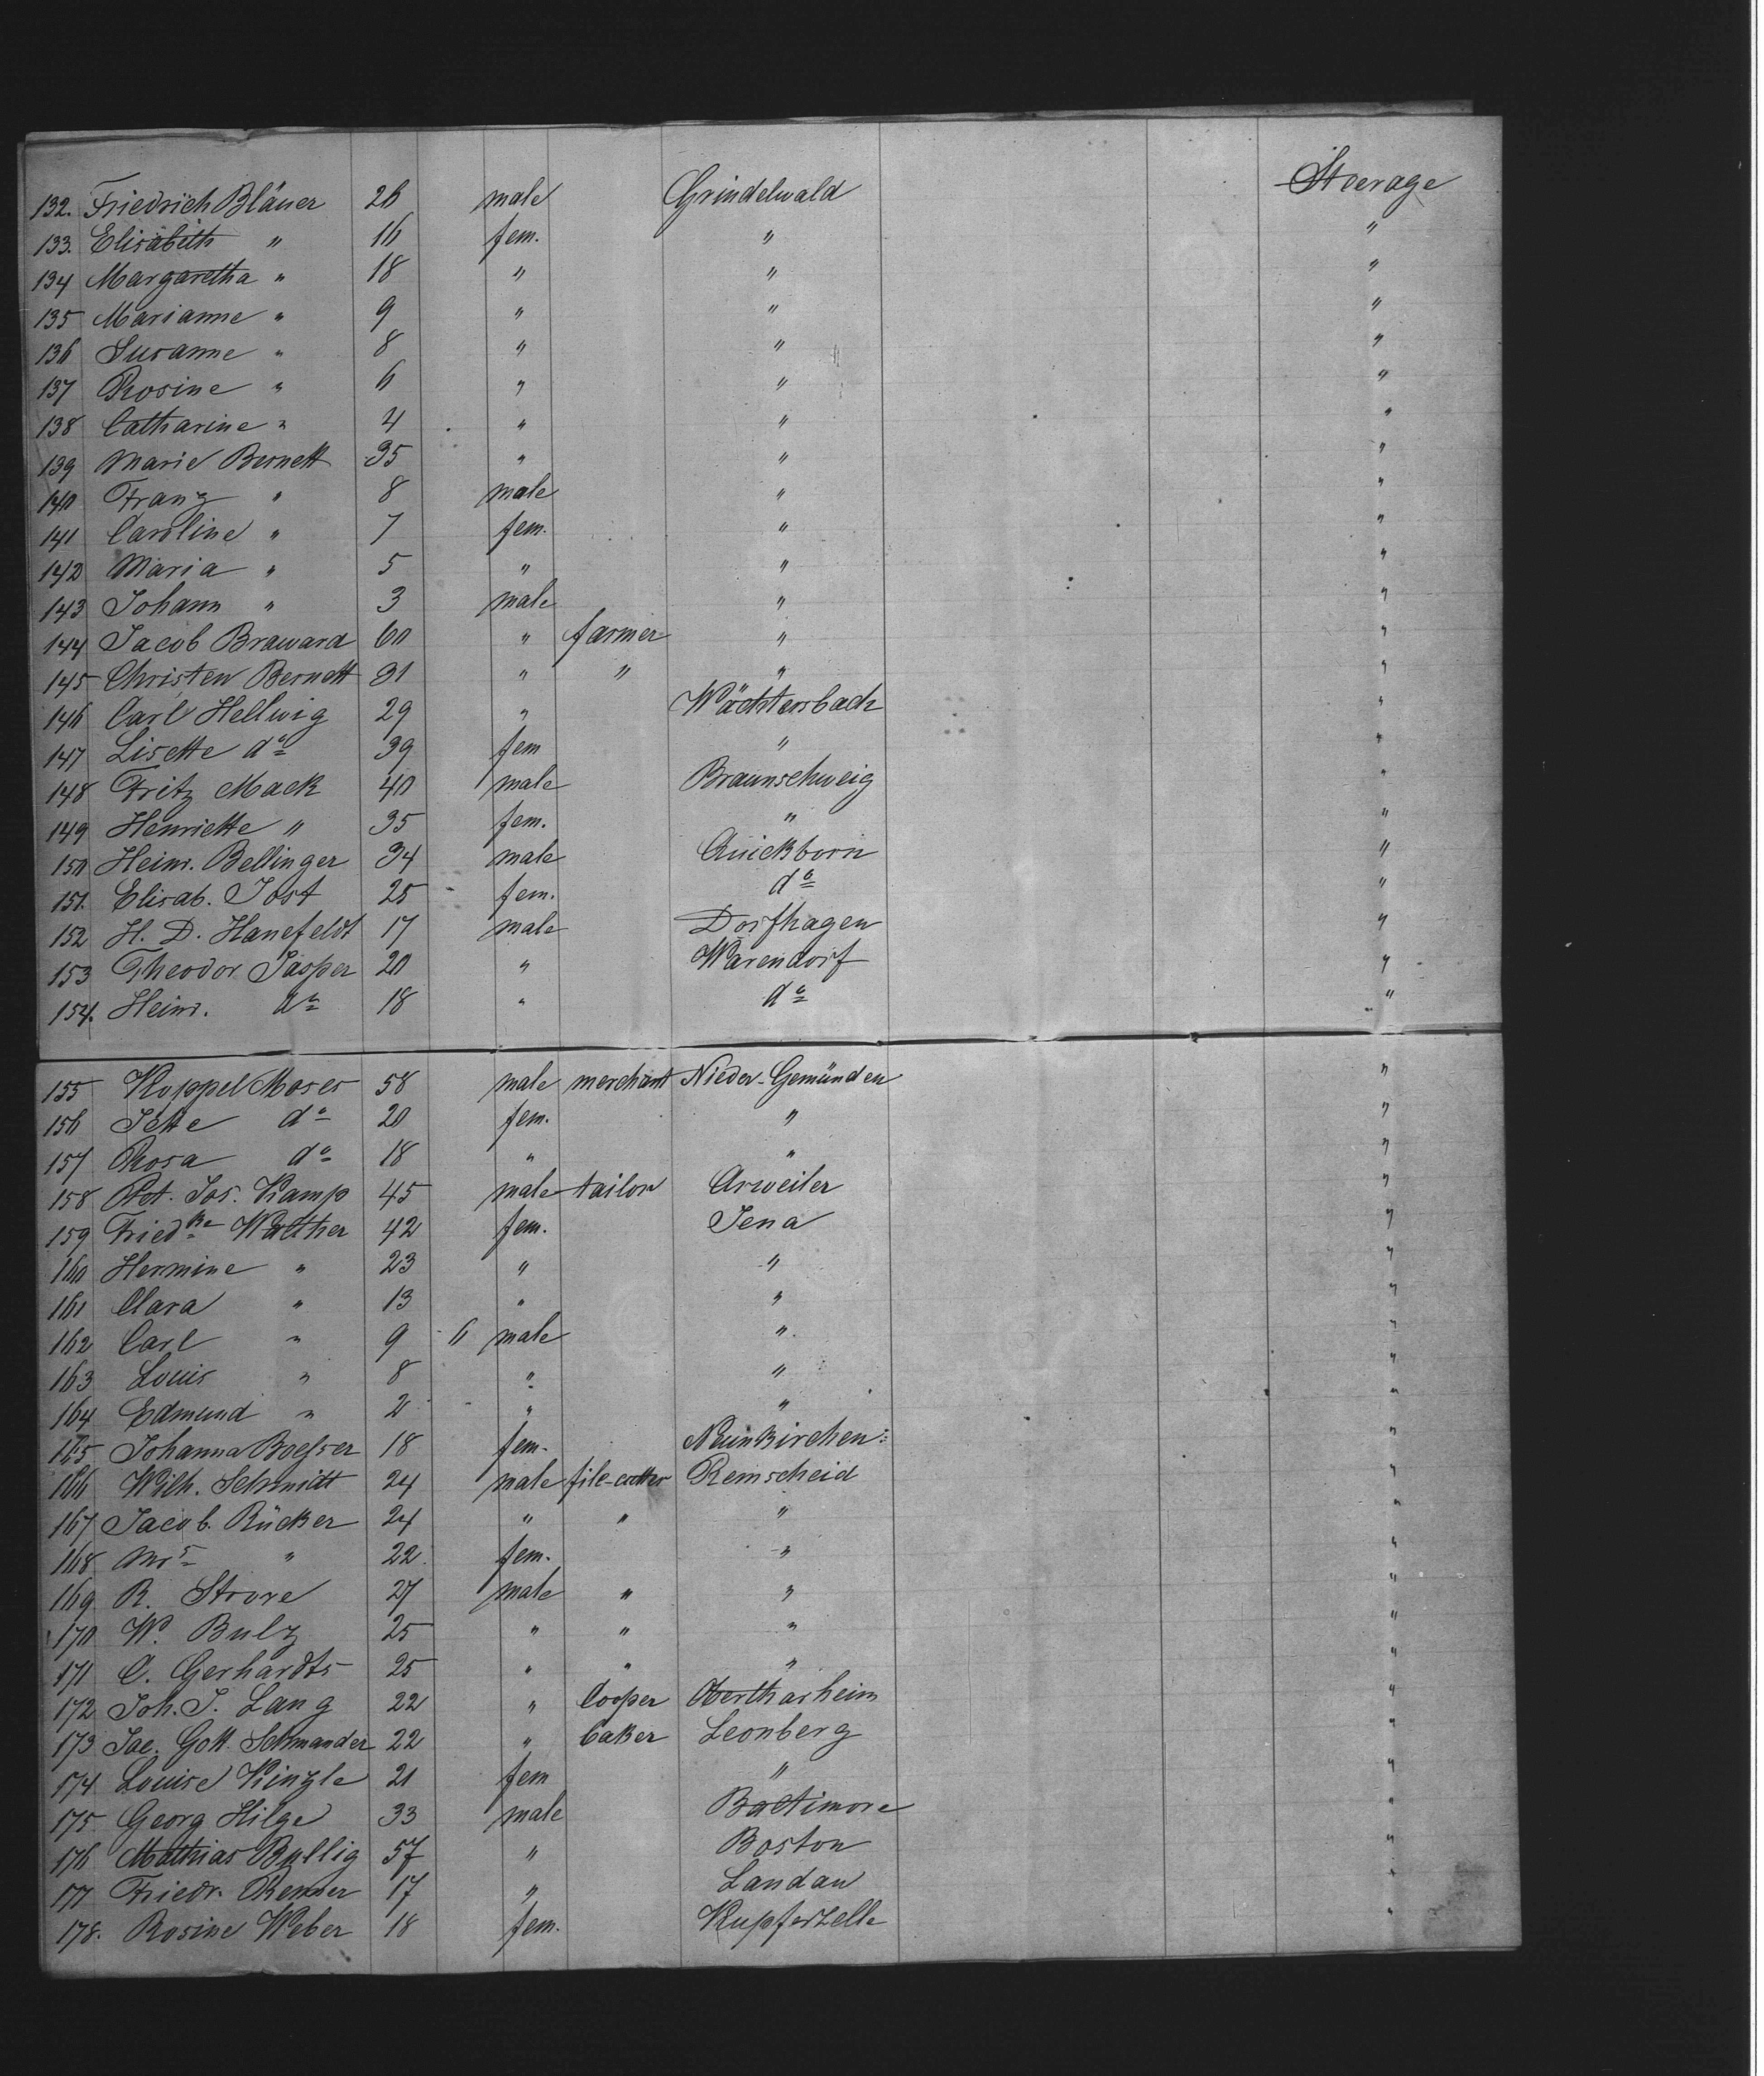 132. Friedrich Bläuer 26 male Grindelwald Steerage
133. Elisabeth " 16 fem. " "
134 Margaretha " 18 " " "
135 Marianne " 9 " " "
136 Susanne " 8 " " "
137 Rosine " 6 " " "
138 Catharine " 4 " " "
139 Marie Bernett 35 " " "
140 Franz " 8 male " "
141 Caroline " 7 fem. " "
142 Maria " 5 " " "
143 Johann " 3 male " "
144 Jacob Braward 60 " farmer " "
145 Christen Bernett 31 " " " "
146 Carl Hellwig 29 " Wächtersbach "
147 Lisette do 39 fem " "
148 Fritz Mack 40 male Braunschweig "
149 Henriette " 35 fem. " "
150 Heinr. Bellinger 34 male Quickborn "
151. Elisab. Jost 25 fem. do "
152 H. D. Hanefeldt 17 male Dorfhagen "
153 Theodor Jasper 20 " Warendorf "
154. Heinr. do 18 " do "
155 Koppel Moses 58 male merchant Nieder-Gemünden "
156 Jette do 20 fem. " "
157 Rosa do 18 " " "
158 Pet. Jos. Kamp 45 male tailor Arweiler "
159 Friedke Walther 42 fem. Jena "
160 Hermine " 23 " " "
161 Clara " 13 " " "
162 Carl " 9 6 male " "
163 Louis " 8 " " "
164 Edmund " 2 " " "
165 Johanna Boesser 18 fem. Neunkirchen "
166 Wilh. Schmidt 24 male file-cutter Remscheid "
167 Jacob. Rücker 24 " " " "
168 Mrs " 22 fem. " "
169 R. Strove 27 male " " "
170 W. Bulz 25 " " " "
171 C. Gerhardts 25 " " " "
172 Joh. J. Lang 22 " Cooper Obertharheim "
173 Jac. Gott. Schmander 22 " baker Leonberg "
174 Louise Kinzle 21 fem " "
175 Georg Hilge 33 male Baltimore "
176 Mathias Bullig 57 " Boston "
177 Friedr. Renner 17 " Landau "
178. Rosine Weber 18 fem. Kupferzelle "